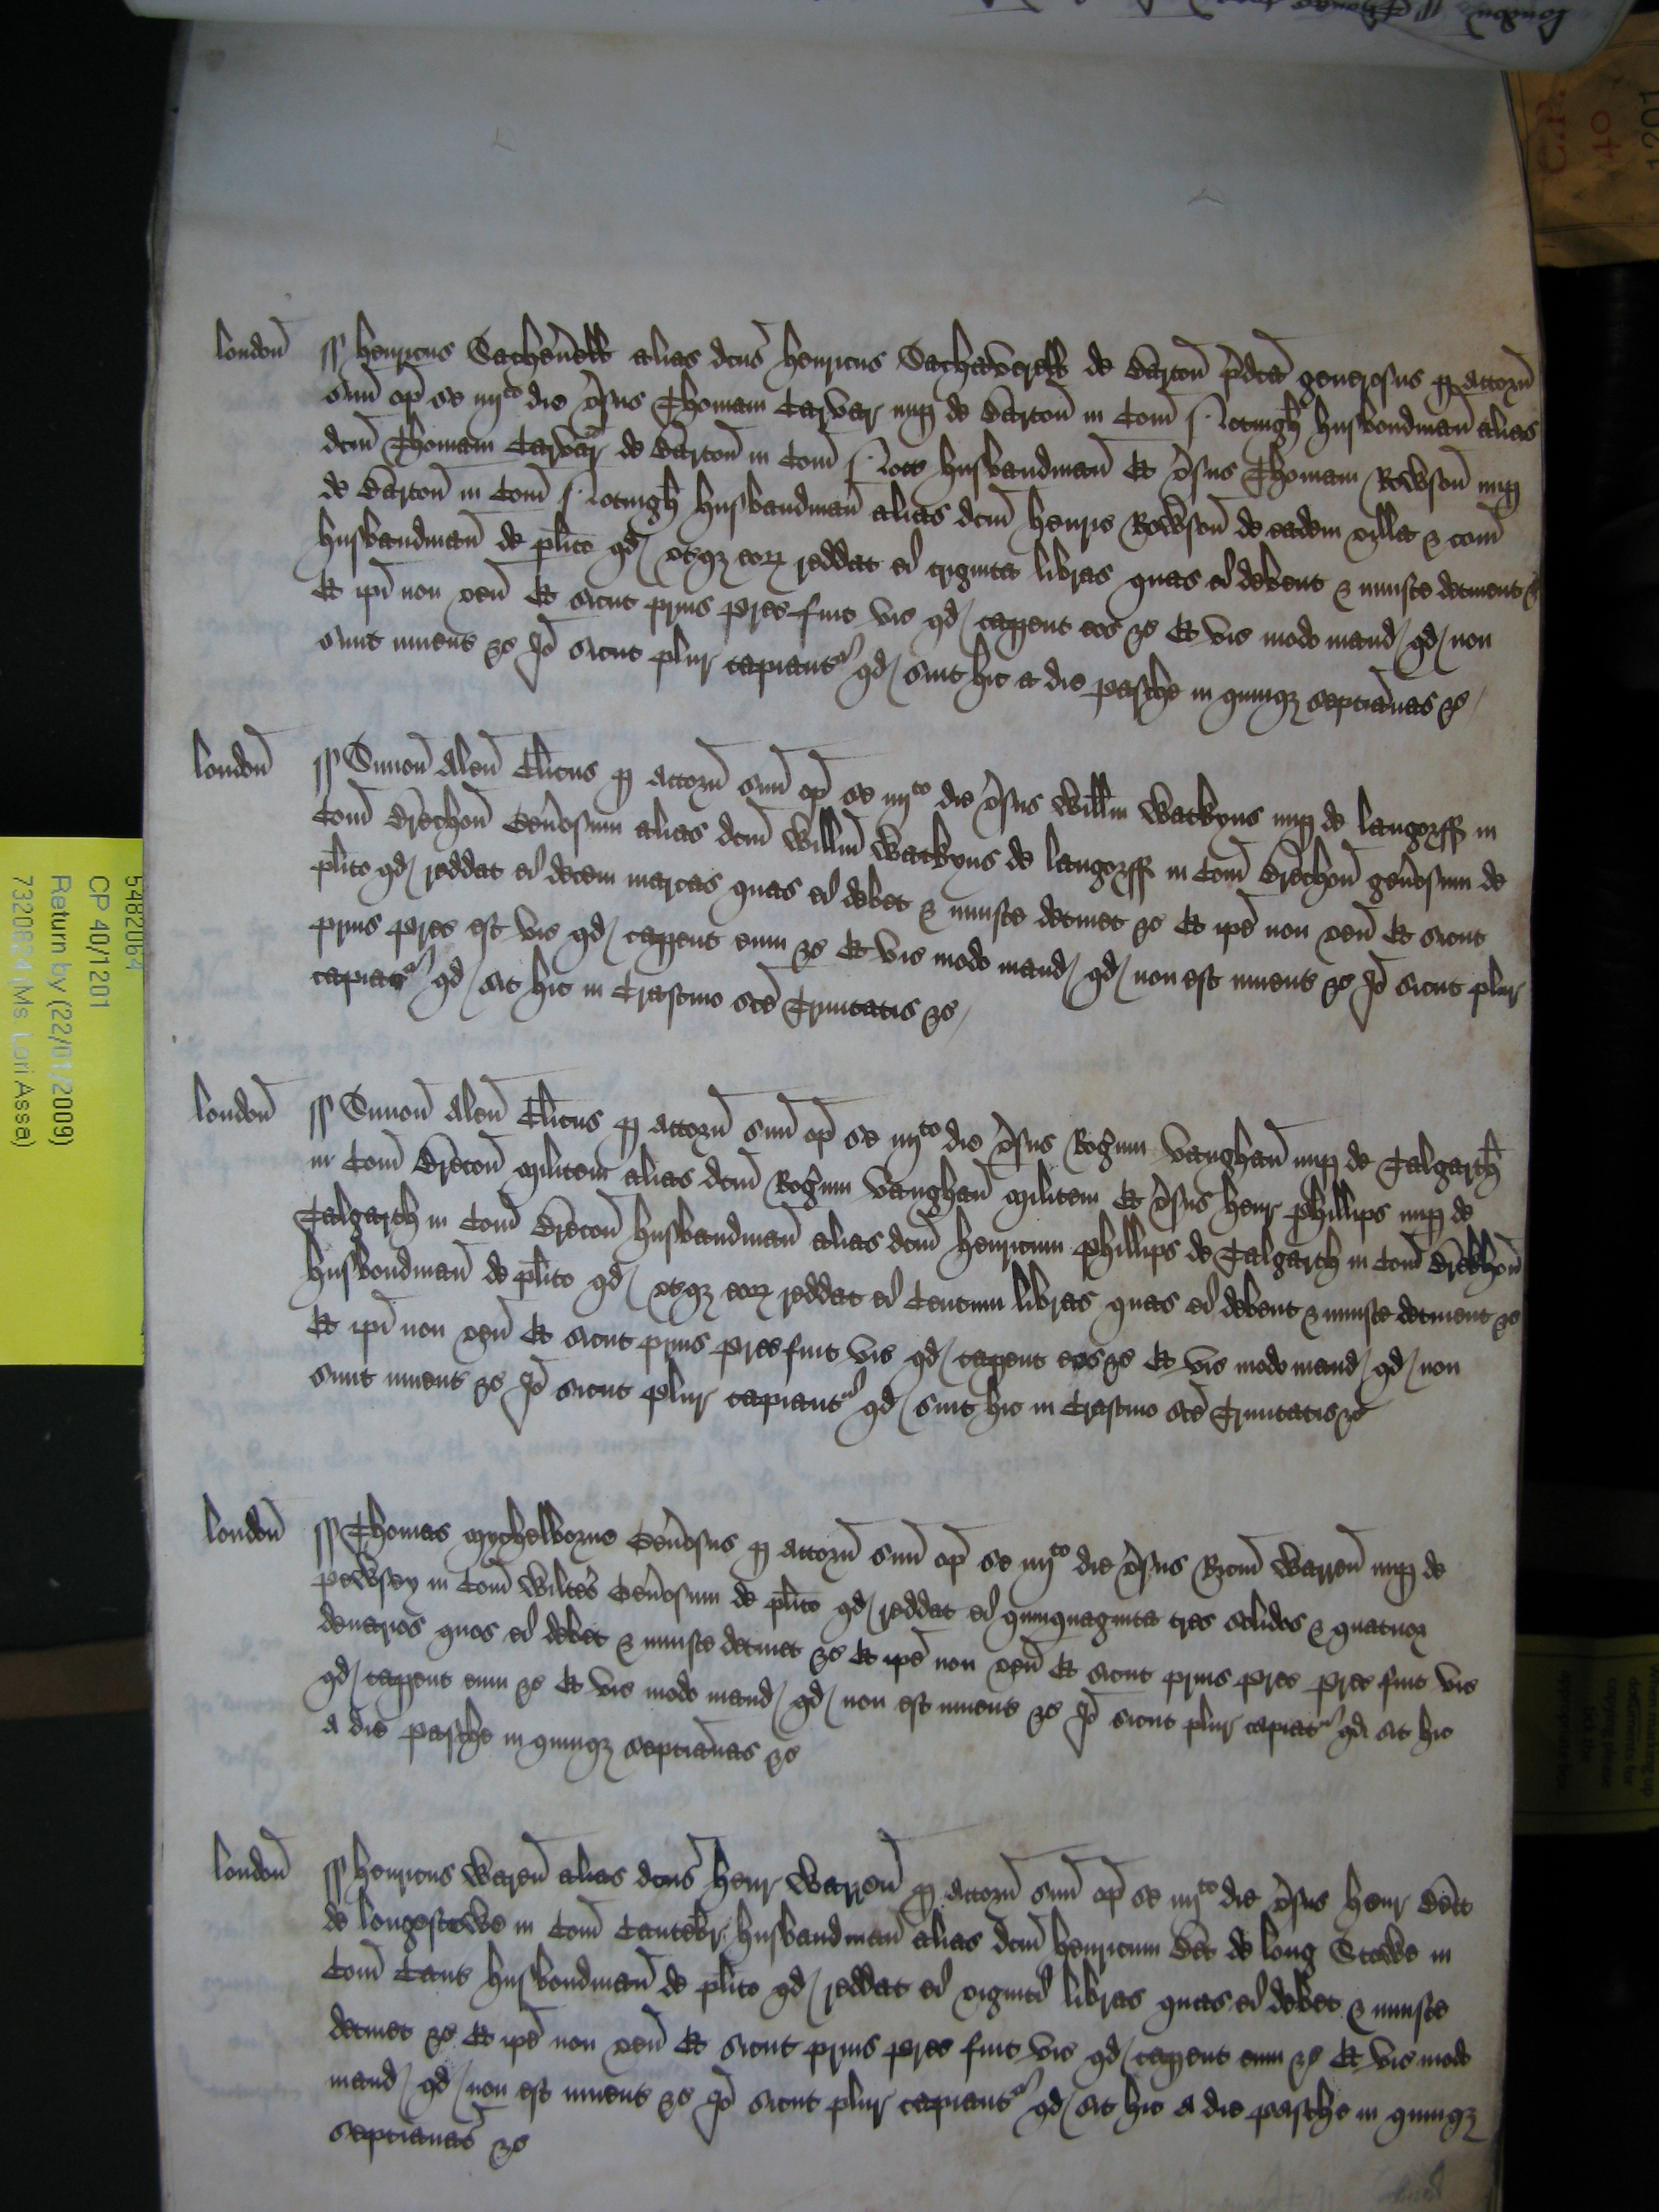 london ss henricus Sachev'ell alias dcus henricus Sachaverell de Barton p'dca generosus p attorn
suu op se iiijto die v'sus Thomam Carvar nup de Barton in Com Notingh husbondman alias
dcm Thomam Carvar de Barton in Com Nott husbandman Et v'sus Thomam Rowson nup
de Barton in Com Notingh husbandman alias dcm henric Rowson de eadem villa & com
husbandman de plito qd utq eor reddat ei triginta libras quas ei debent & iniuste detinent &c
Et ipi non ven Et sicut prius prec fuit vic qd caperet eos &c Et vic modo mand qd non
sunt invent &c Io sicut plur capiantr qd sint hic a die pasche in quinq septianas &c
london ss Simon Alen Clicus p attorn suu op se iiijto die v'sus Willm Watkyns nup de langorss in
Com Brechon Gen'osum alias dcm Willm Watkyns de langorss in Com Brechon gen'osum de
plito qd reddat ei decem marcas quas ei debet & iniuste detinet &c Et ipe non ven Et sicut
prius prec est vic qd caperet eum &c Et vic modo mand qd non est invent &c Io sicut plur
capiatr qd sit hic in Crastino sce Trinitatis &c
london ss Simon Alen Clicus p attorn suu op se iiijto die v'sus Rog'um Vaughan nup de Talgarth
in Com Brecon militem alias dcm Rog'um Vaughan militem Et v'sus henr phillips nup de
Talgarth in Com Brecon husbandman alias dcm henricum phillips de Talgarth in Com Brekhon
husbondman de plito qd utq eor reddat ei Centum libras quas ei debent & iniuste detinent &c
Et ipi non ven Et sicut prius prec fuit vic qd caperet eos &c Et vic modo mand qd non
sunt invent &c Io sicut plur capiantr qd sint hic in Crastino sce Trinitatis &c
london ss Thomas Mychelborne Gen'osus p attorn suu op se iiijto die v'sus Ricm Warren nup de
pewsey in Com Wiltes Gen'osum de plito qd reddat ei quinquaginta tres solidos & quatuor
denarios quos ei debet & iniuste detinet &c Et ipe non ven Et sicut prius prec prec fuit vic
qd caperet eum &c Et vic modo mand qd non est invent &c Io sicut plur capiatr qd sit hic
a die pasche in quinq septianas &c
london ss henricus Waren alias dcus henr Warren p attorn suu op se iiijto die v'sus henr Bett
de longestowe in Com Cantebr husbandman alias dcm henricum Bet de long Stowe in
Com Cant husbondman de plito qd reddat ei viginti libras quas ei debet & iniuste
detinet &c Et ipe non ven Et sicut prius prec fuit vic qd caperet eum &c Et vic modo
mand qd non est invent &c Io sicut plur capiantr qd sit hic a die pasche in quinq
septianas &c
5482064
CP 40/1201
Return by (22/01/2009)
7320864 (Ms Lori Assa)
C.P.
40
1201